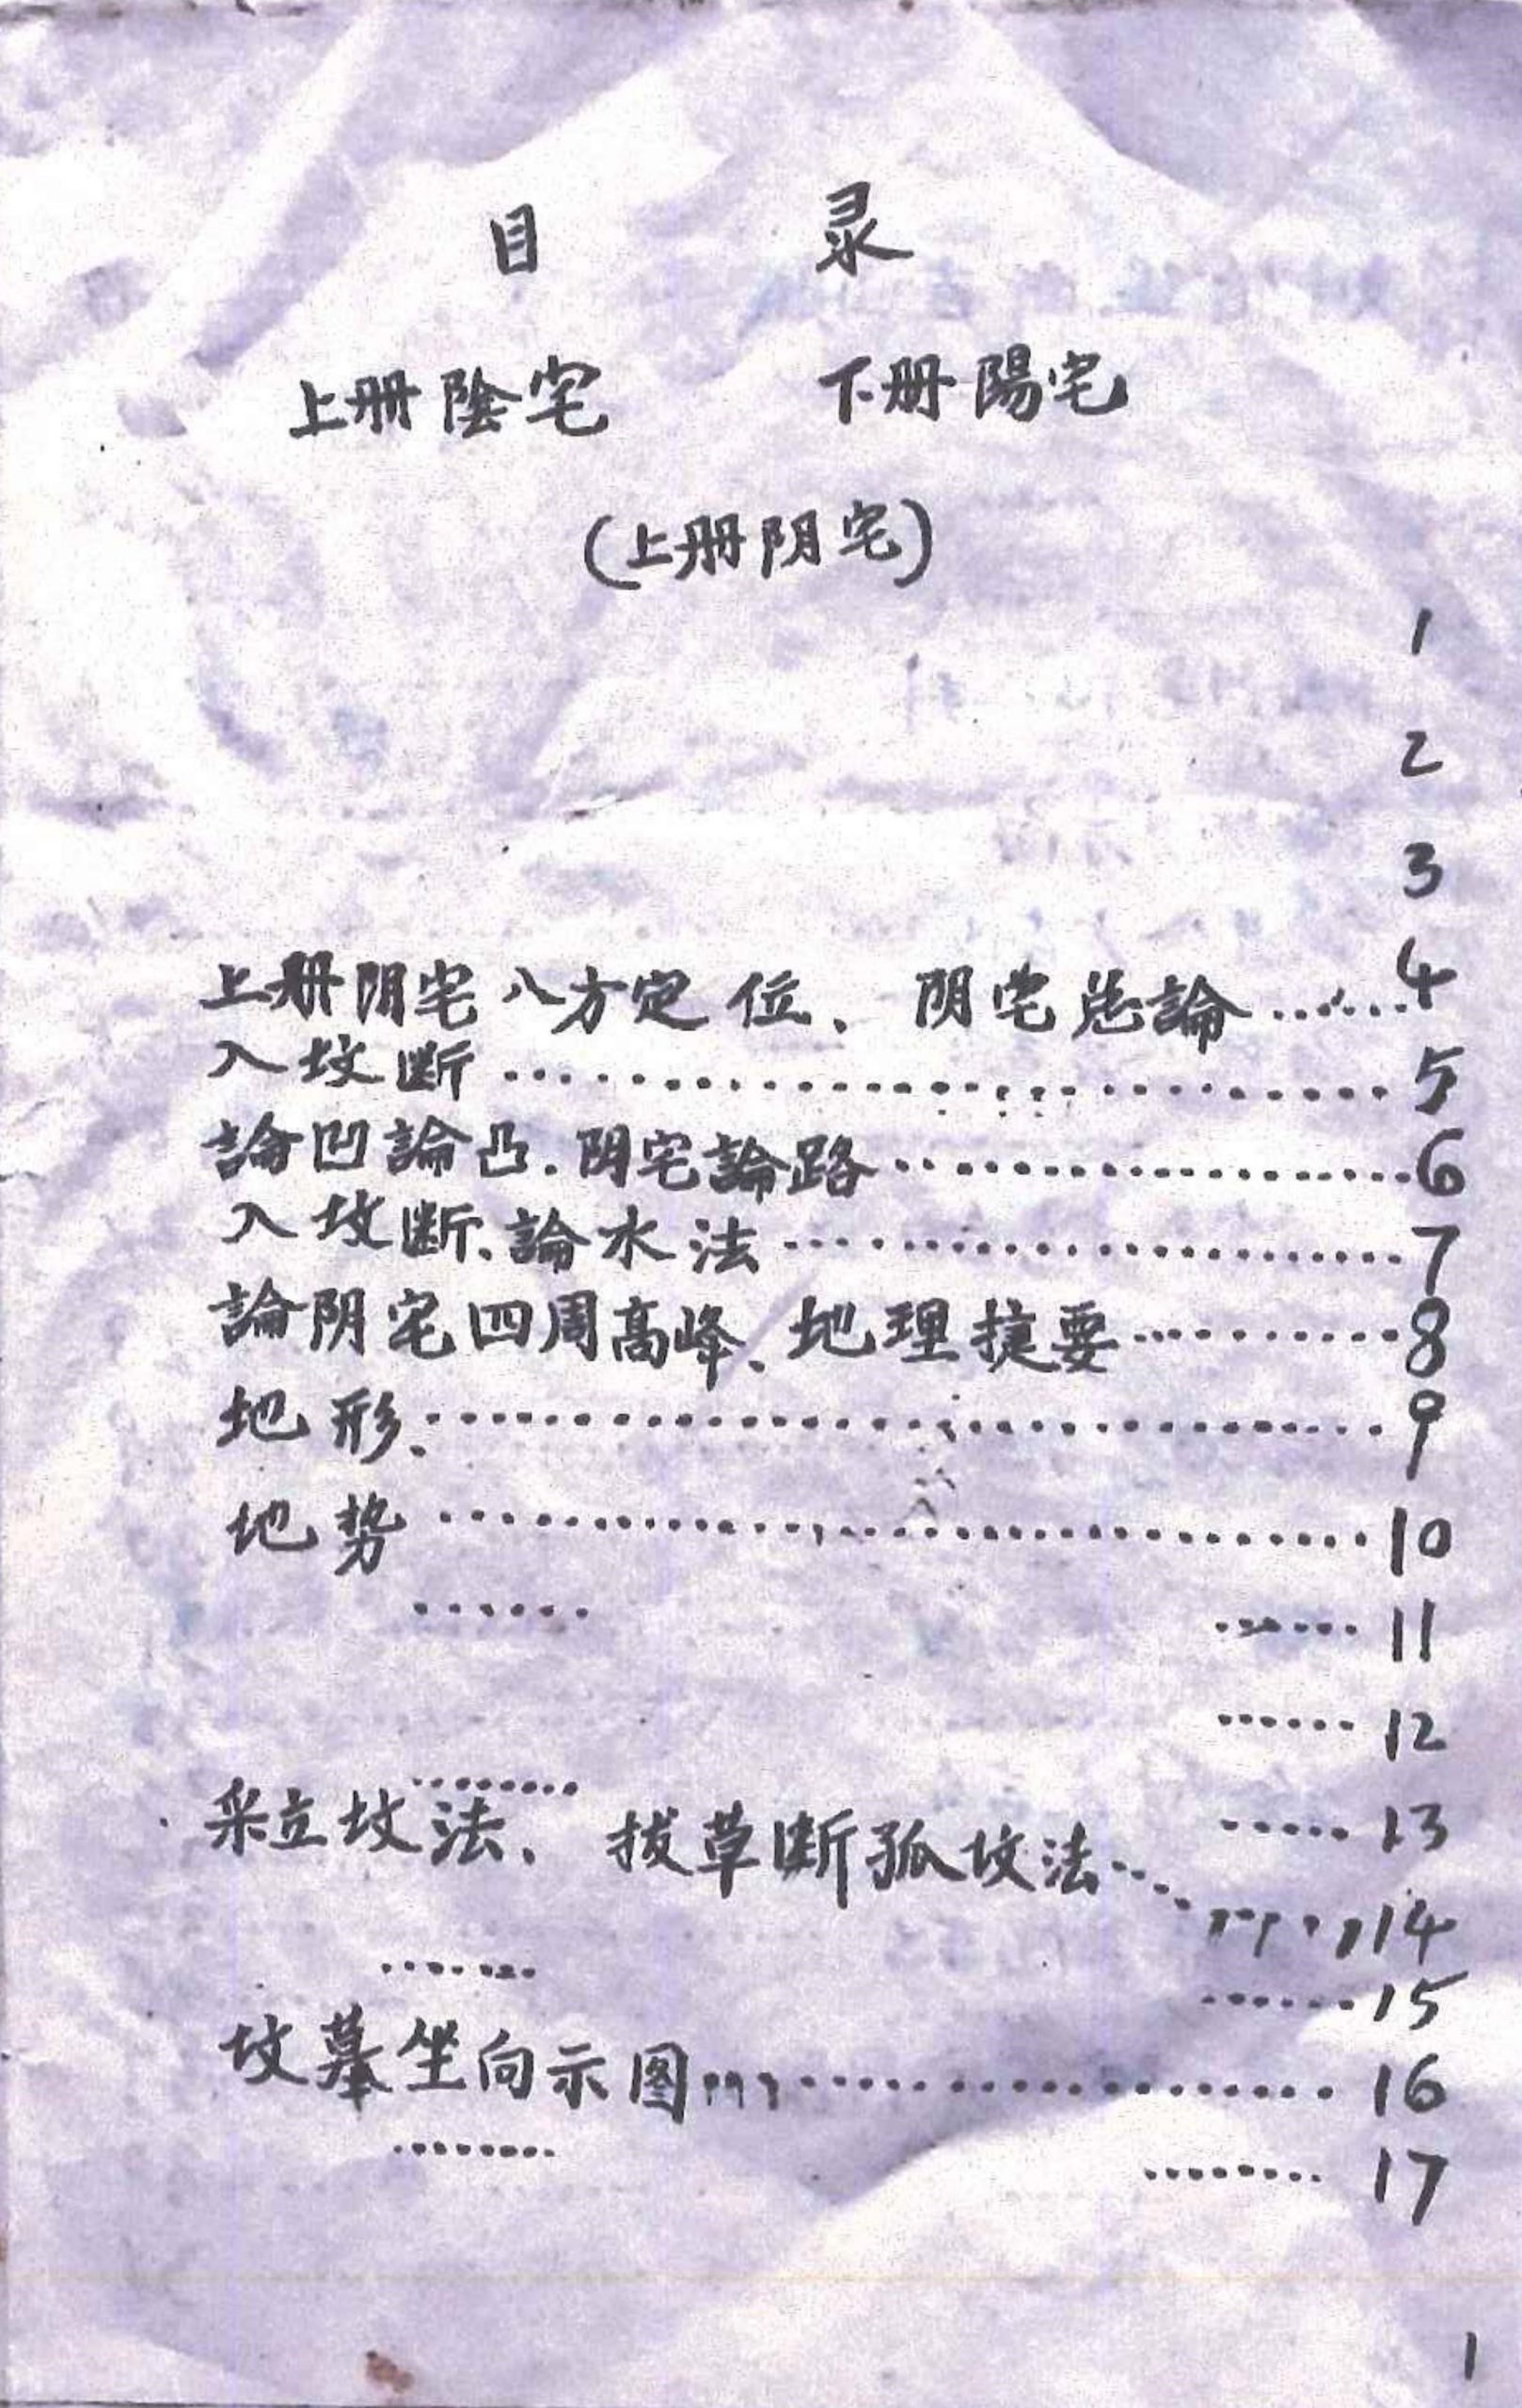 目 录
上册陰宅 下册陽宅
(上册阴宅)
1
2
3
上册阴宅八方定位、阴宅总論……4
入坟断………………5
論凹論凸.阴宅論路………………6
入坟断、論水法………………7
論阴宅四周高峰、地理捷要………8
地形、………………9
地势………………10
…… …… 11
…… 12
……… …… 13
采立坟法、拔草断孤坟法………14
…… …… 15
坟墓坐向示图………………16
……… ……… 17
1